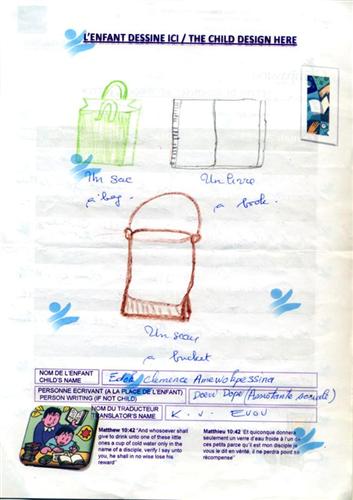 L'ENFANT DESSINE ICI / THE CHILD DESIGN HERE
Un sac
a bag.
Un livre
a book.
Un seau
a bucket
NOM DE L'ENFANT
CHILD'S NAME
Clemence
PERSONNE ECRIVANT (A LA PLACE DE L'ENFANT)
PERSON WRITING (IF NOT CHILD)
Dope (Assistante sociale)
NOM DU TRADUCTEUR
TRANSLATOR'S NAME
K. J.
Matthew 10:42 "And whosoever shall
give to drink unto one of these little
ones a cup of cold water only in the
name of a disciple, verify I say unto
you, he shall in no wise lose his
reward"
Matthieu 10:42 "Et quiconque donnera
seulement un verre d'eau froide à l'un de
ces petits parce qu'il est mon disciple je
vous le dit en vérité, il ne perdra point sa
récompense"